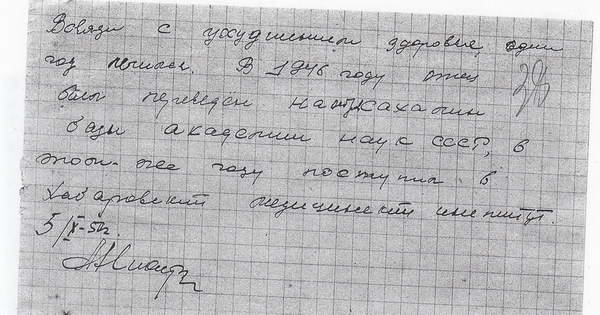 Всвязи с ухудшением здоровья один
год лечился. В 1946 году отец
был переведен на Сахалин
базы академии наук СССР, в
этом-же году поступил в
Хабаровский медицинский институт.
5/IX-52г.